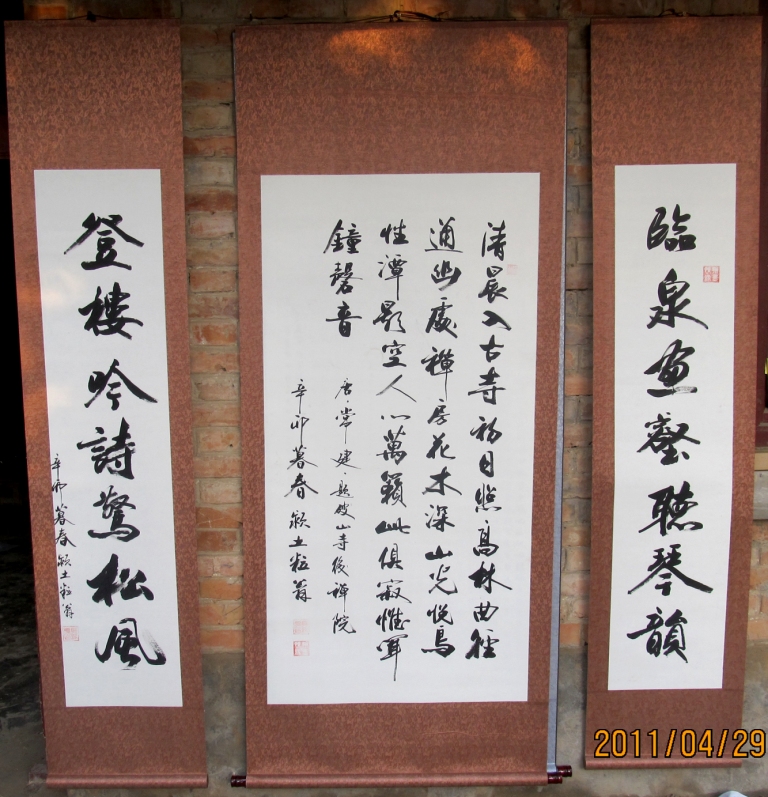 臨泉画壑聽琴韻
清晨入古寺初日照高林曲徑
通幽處禪房花木深山光悅鳥
性潭影空人心萬籟此俱寂惟聞
鐘磬音
唐·常建·題破山寺後禪院
辛卯暮春
登樓吟詩驚松風
辛卯暮春
2011/04/29